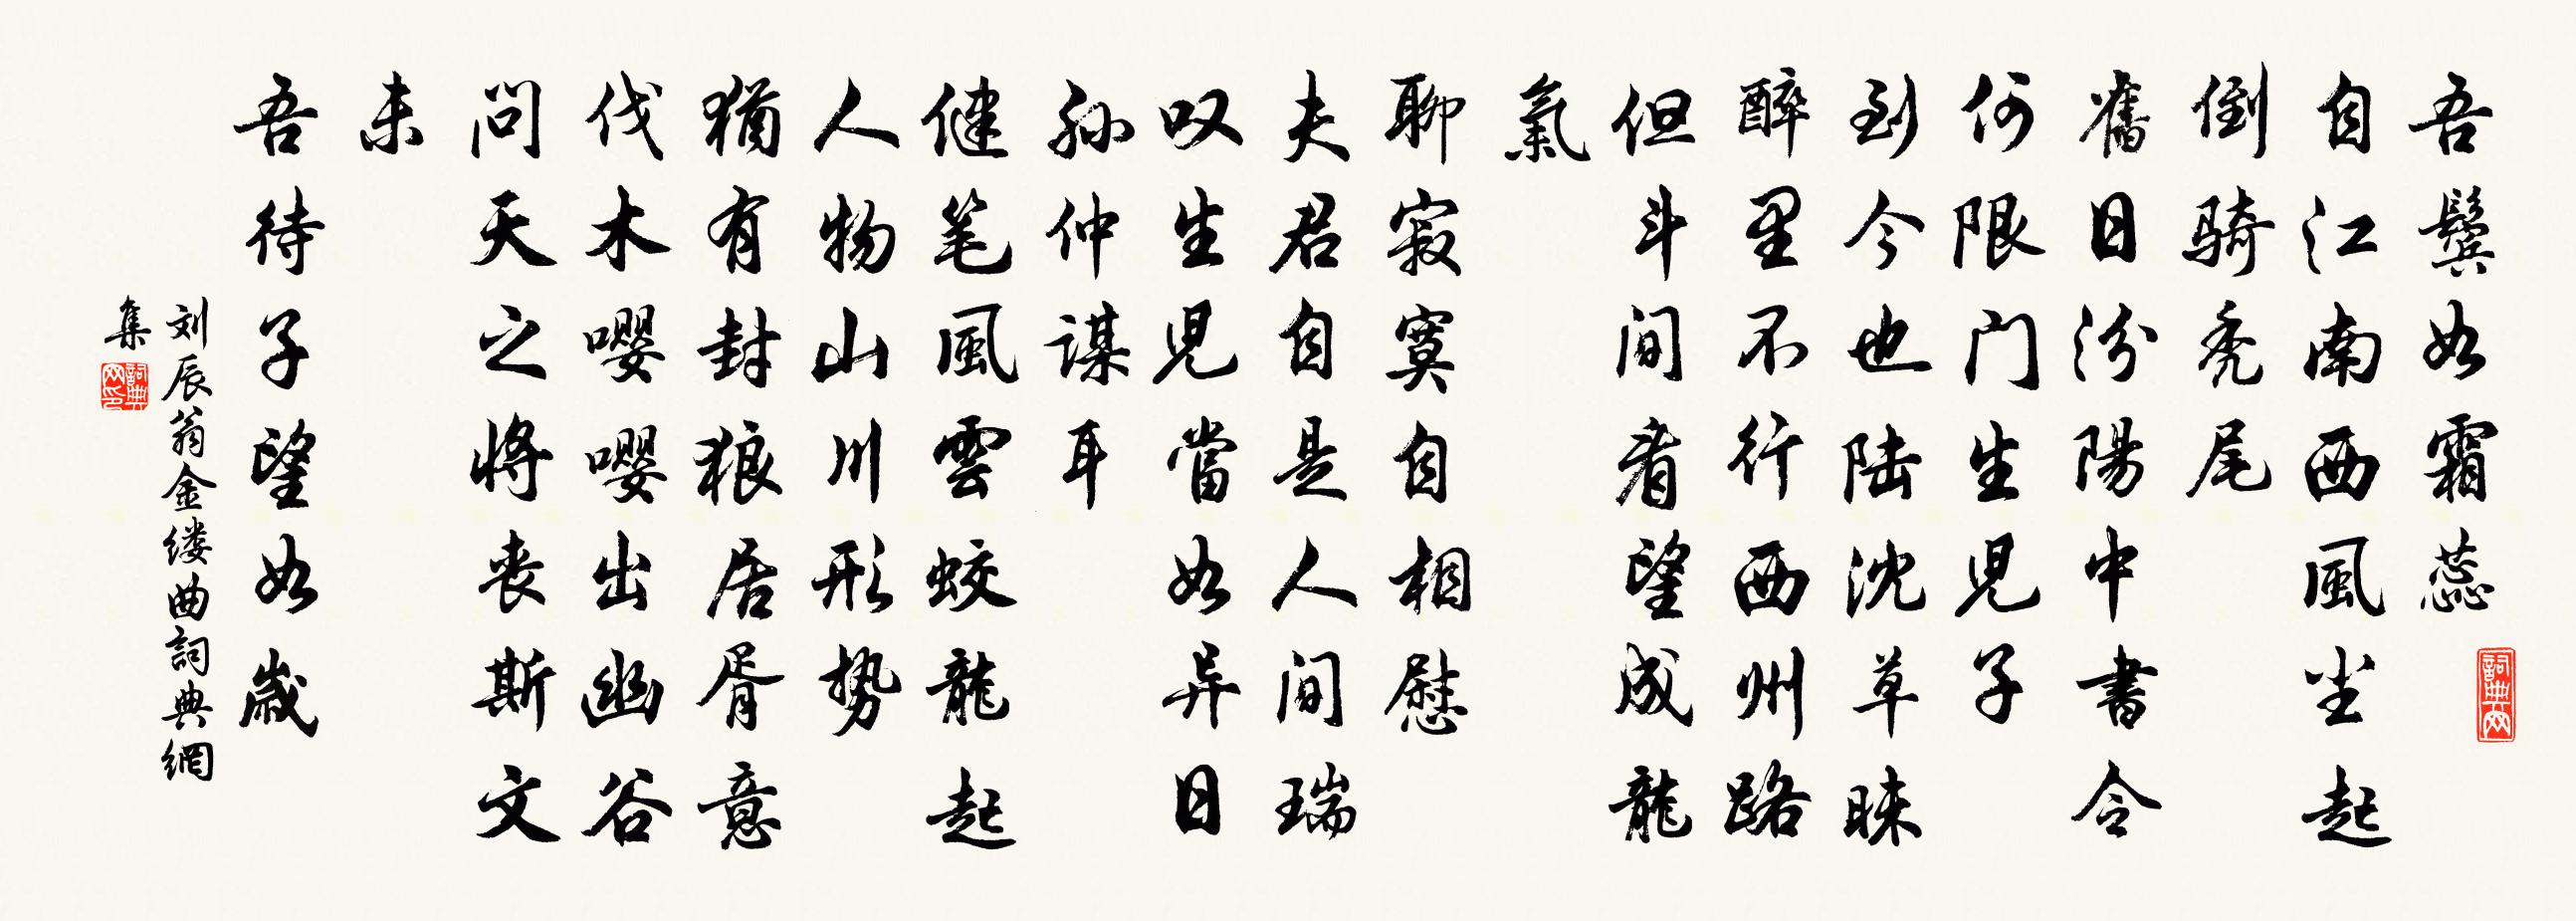 吾鬓如霜蕊
詞典网
自江南西風尘起
倒骑秃尾
舊日汾陽中書令
何限门生児子
到今也陆沈草昧
醉里不行西州路
但斗间看望成龍
氣
聊寂寞自相慰
夫君自是人间瑞
叹生児當如异日
孙仲謀耳
健笔風雲蛟龍起
人物山川形势
猶有封狼居胥意
伐木嘤嘤出幽谷
问天之將丧斯文
未
吾待子望如歲
刘辰翁金缕曲詞典網
集
詞典网印